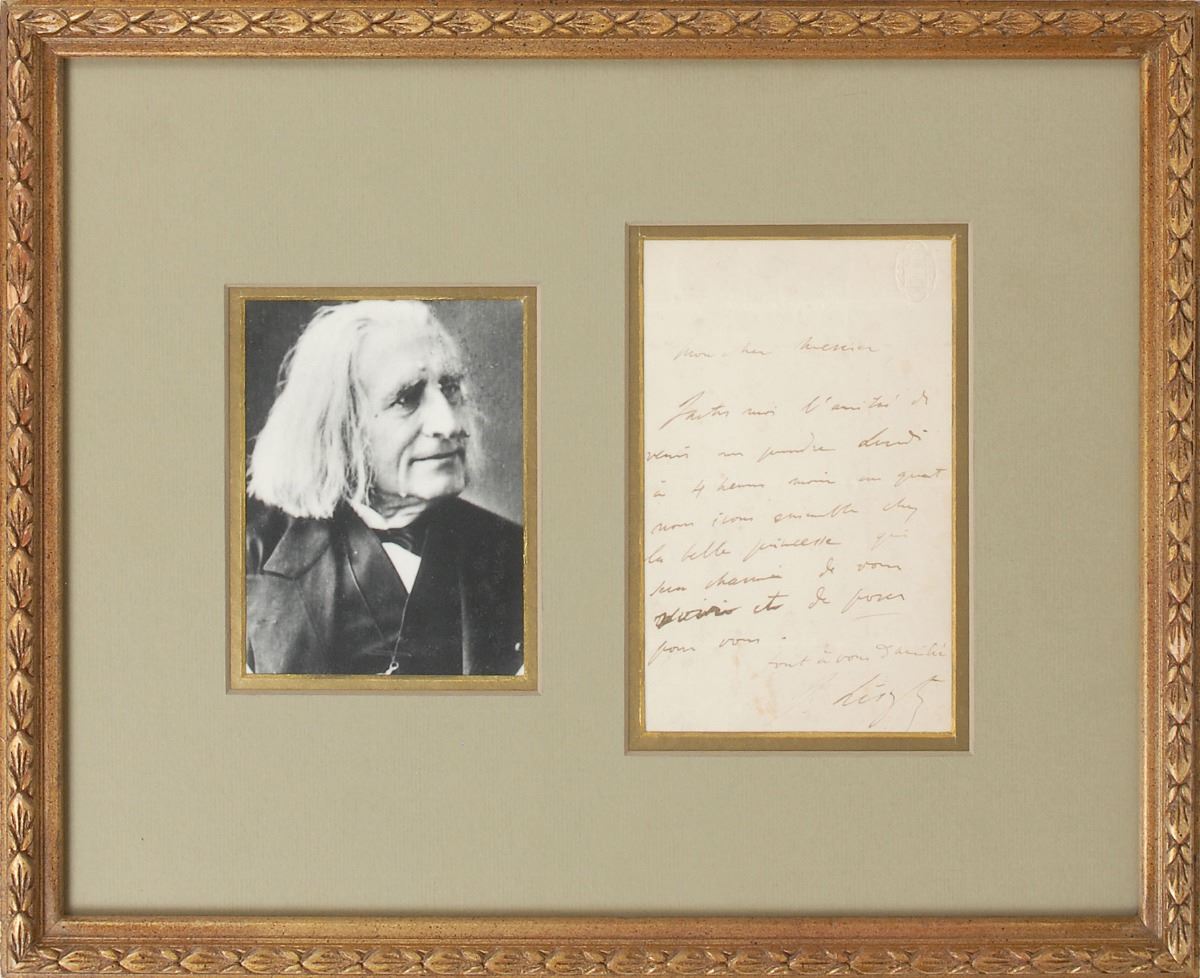 Mon cher Messier
Faites moi l'amitié de
venir me prendre Lundi
à 4 heures moins un quart
nous irons ensemble chez
la belle princesse qui
sera charmée de vous
revoir et de poser
pour vous.
tout à vous d'amitié
F. Liszt